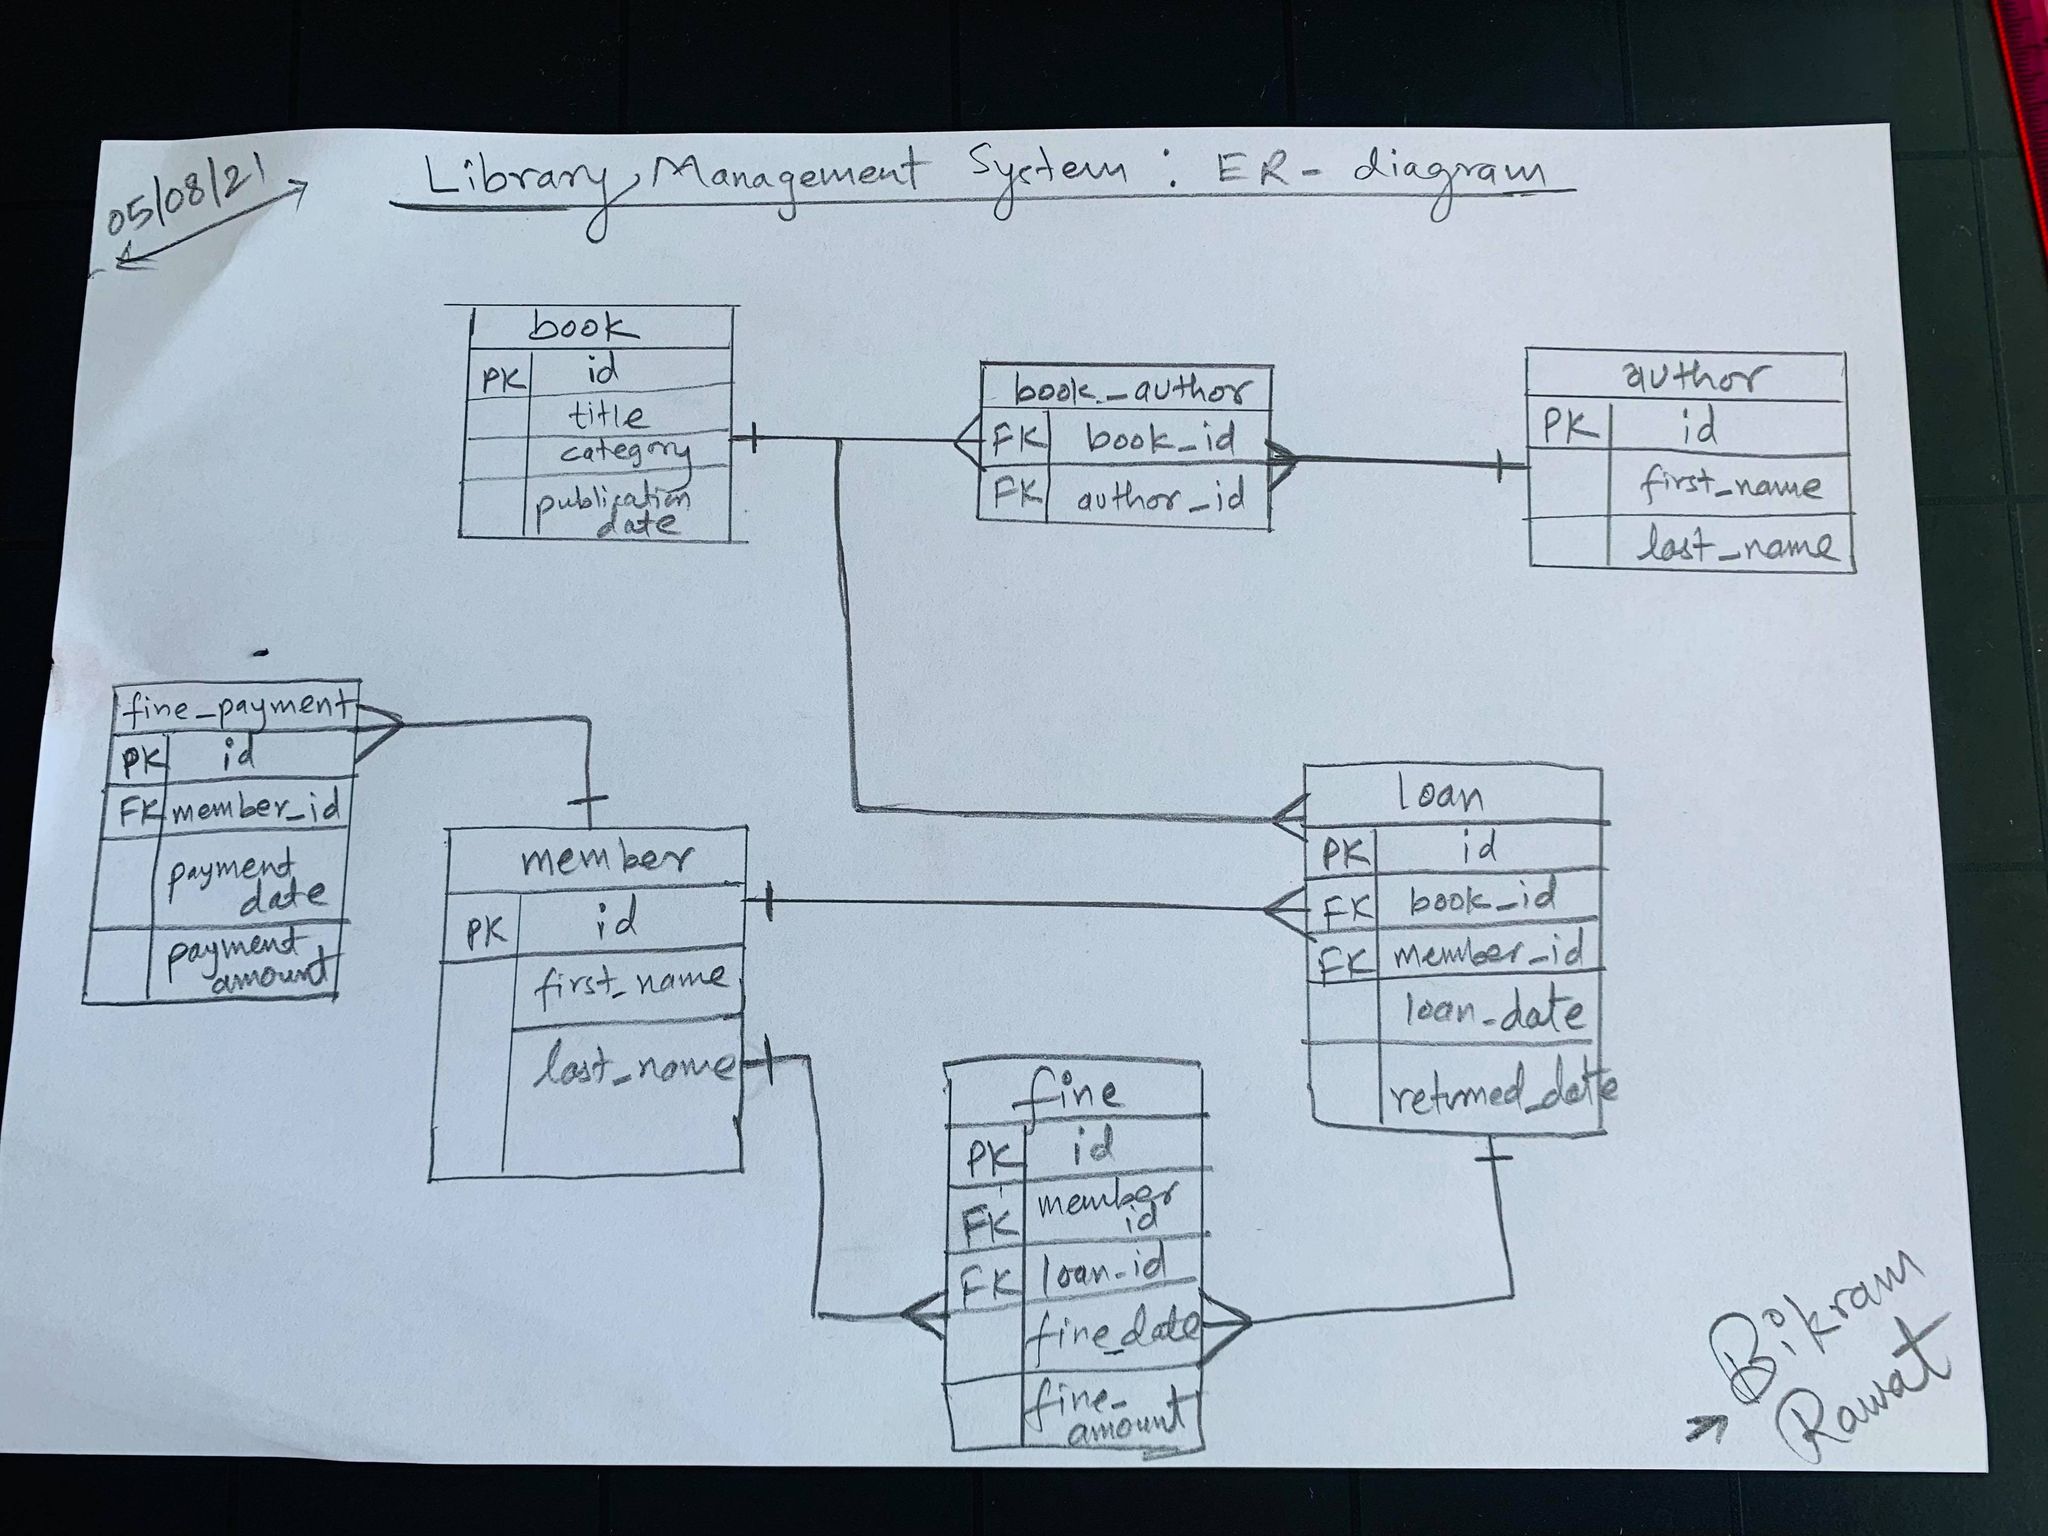 05/08/21
Library Management System : ER - diagram
book
PK id
title
category
publication
date
book_author
FK book_id
FK author_id
author
PK id
first_name
last_name
fine_payment
PK id
FK member_id
payment
date
payment
amount
member
PK id
first_name
last_name
loan
PK id
FK book_id
FK member_id
loan_date
returned_date
fine
PK id
FK member
id
FK loan_id
fine_date
fine_
amount
Bikram
Rawat